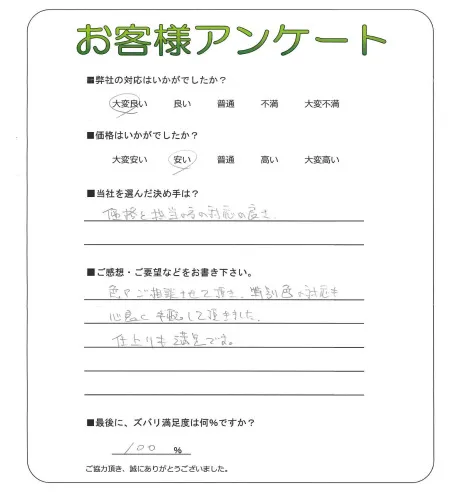 お客様アンケート
■弊社の対応はいかがでしたか？
大変良い 良い 普通 不満 大変不満
■価格はいかがでしたか？
大変安い 安い 普通 高い 大変高い
■当社を選んだ決め手は？
価格と担当の方の対応の良さ
■ご感想・ご要望などをお書き下さい。
色々ご相談させて頂き、特別色の対応も
心良く手配して頂きました。
仕上りも満足です。
■最後に、ズバリ満足度は何％ですか？
100 ％
ご協力頂き、誠にありがとうございました。